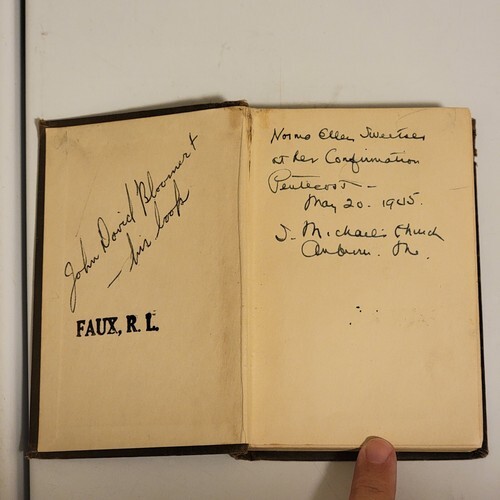 John David Bloomer +
— his book
FAUX, R. L.
Norma Ellen Sweetser
at her Confirmation
Pentecost —
May 20. 1945.
S. Michael's Church
Auburn. Me.